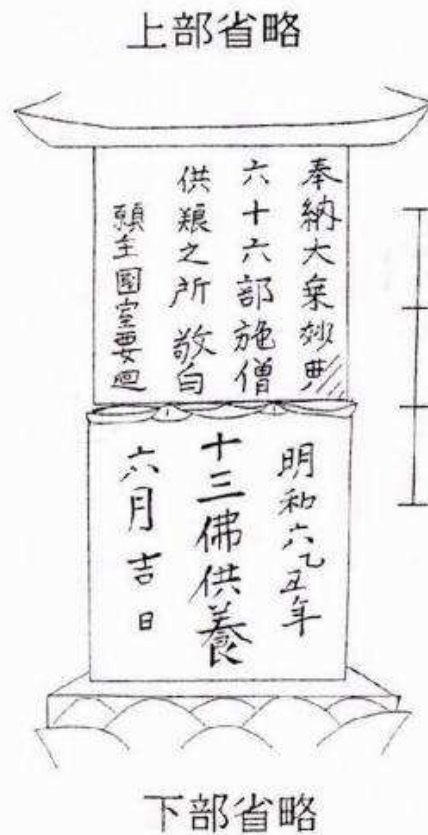 上部省略
奉納大乗妙典
六十六部施僧
供粮之所 敬白
願主國室要廻
明和六乙丑年
十三佛供養
六月吉日
下部省略